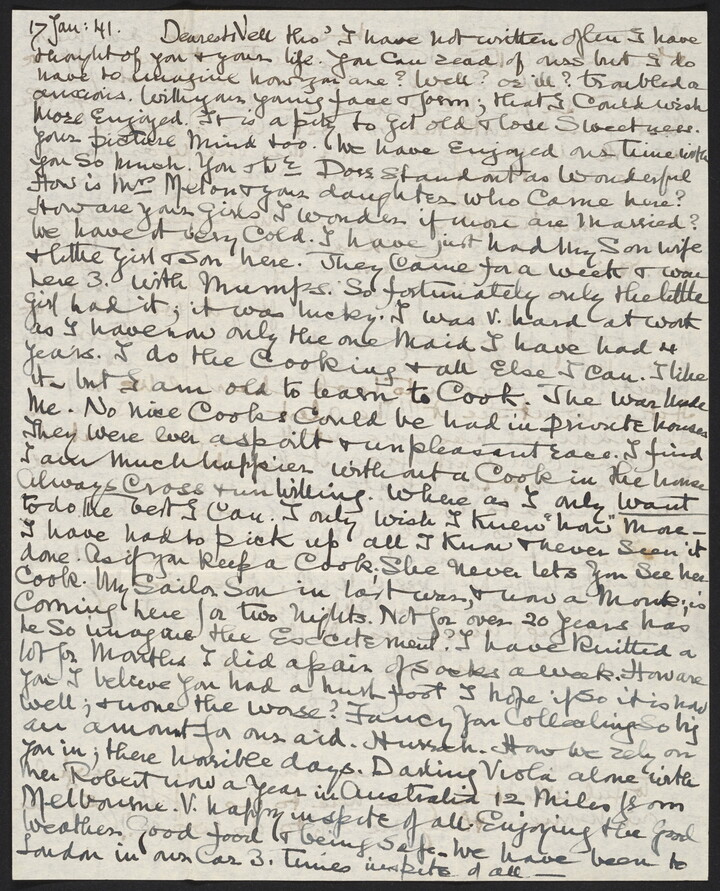 17 Jan: 41. Dearest Nell tho' I have not written often I have
thought of you & your life. You can read of ours but I do
have to imagine how you are? Well? or ill? troubled or
anxious. With your young face & form; that I could wish
more Enjoyed. It is a pity to get old & lose Sweetness.
your picture Mind too. We have Enjoyed our time with
you So much. You & Does Stand out as Wonderful
How is Mrs & your daughter who Came here?
How are your Girls I wonder if more are Married?
We have it very Cold. I have just had My Son wife
& little Girl & Son here. They Came for a week & was
here 3. with Mumps. So fortunately only the little
Girl had it; it was lucky. I was V. hard at work
as I have now only the one Maid I have had 4
years. I do the Cooking & all Else I Can. I like
it - but I am old to learn to Cook. The war Made
Me. No nice Cooks Could be had in private houses
They were Ever a spoilt & unpleasant race. I find
I am Much happier without a Cook in the house
always Cross & unwilling. Where as I only want
to do the best I Can. I only wish I Knew "how" More -
I have had to pick up all I Know & never Seen it
done. as if you keep a Cook. She never lets You See her
Cook. My Sailor Son in last war, & now a Monk, is
Coming here for two Nights. Not for over 20 years has
he So imagine the Excitement? I have Knitted a
lot for Months I did a pair of Socks a week. How are
you I believe you had a hurt foot I hope if So it is now
well; & none the worse? Fancy you Collecting So big
an amount for our aid. Hurrah. How we rely on
you in; these horrible days. Darling Viola alone with
her Robert now a Year in Australia 12 Miles from
Melbourne. V. happy inspite of all. Enjoying the Good
Weather Good food & being Safe. We have been to
London in our Car 3. times inspite of all. —